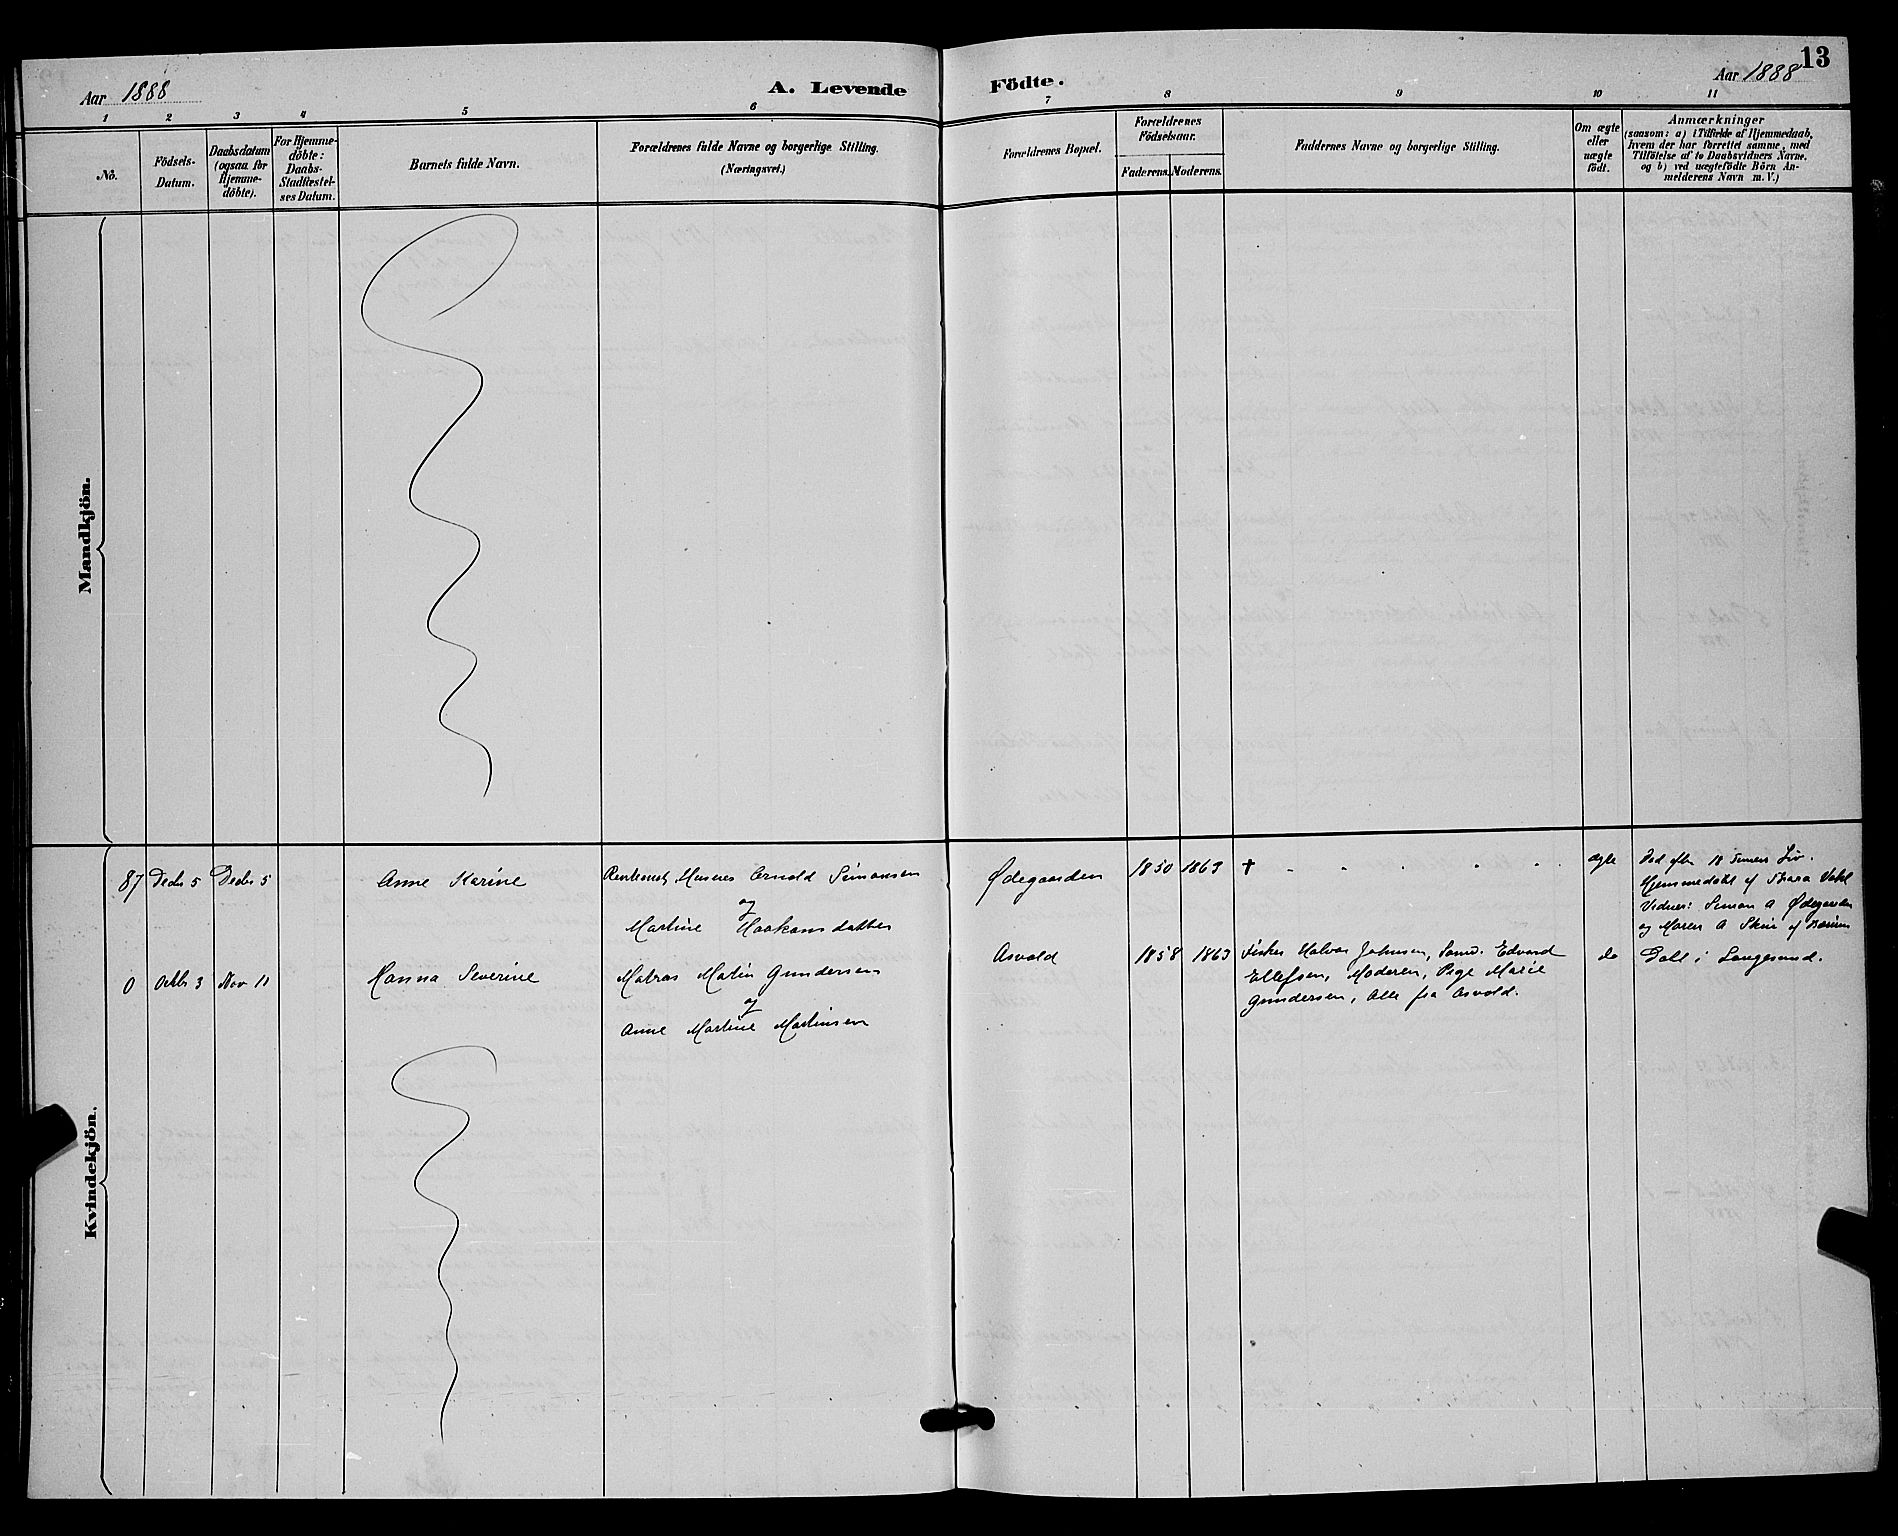 13
Aar 1888
A. Levende Födte.
Aar 1888
1 2 3 4 5 6 7 8 9 10 11
No.
Födsels-
Datum.
Daabsdatum
(ogsaa for
Hjemme-
döbte).
For Hjemme-
döbte:
Daabs-
Stadfæstel-
ses Datum.
Barnets fulde Navn.
Forældrenes fulde Navne og borgerlige Stilling.
(Næringsvei.)
Forældrenes Bopæl.
Forældrenes
Födselsaar.
Faderens. Moderens.
Faddernes Navne og borgerlige Stilling.
Om ægte
eller
uægte
födt.
Anmærkninger
(saasom: a) i Tilfælde af Hjemmedaab,
hvem der har forrettet samme, med
Tilföielse af to Daabsvidners Navne,
og b) ved uægtefödte Börn An-
melderens Navn m. V.)
Mandkjön.
Kvindekjön.
87 Decbr 5 Decbr 5
Anne Karine
Arnold Simonsen
og
Martine Haakonsdatter
Ødegaarden
1850 1863
†
ægte
Død efter Timers Liv.
Hjemmedøbt af
Vidner: Simon A Ødegaarden
og Maren A
0 Octbr 3 Nov 11
Hanna Severine
Matros Martin Gundersen
og
Anne Martine Martinsen
Asvald
1858 1863
Fisker Halvor Johnsen, Sømd. Edvard
Ellefsen, Moderen, Pige Marie
Gundersen, Alle fra Asvold.
do
Døbt i Langesund.